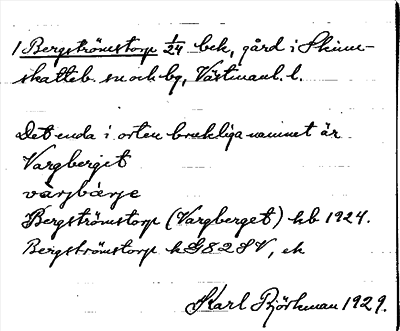 1 Bergströmstorp 1/24 bek, gård i Skinn-
skatteb. sn och bg, Västmanl. l.
Det enda i orten brukliga namnet är
Vargberget
varjbärje
Bergströmstorp (Vargberget) hb 1924.
Bergströmstorp kG82SV, ek
Karl Björkman 1929.